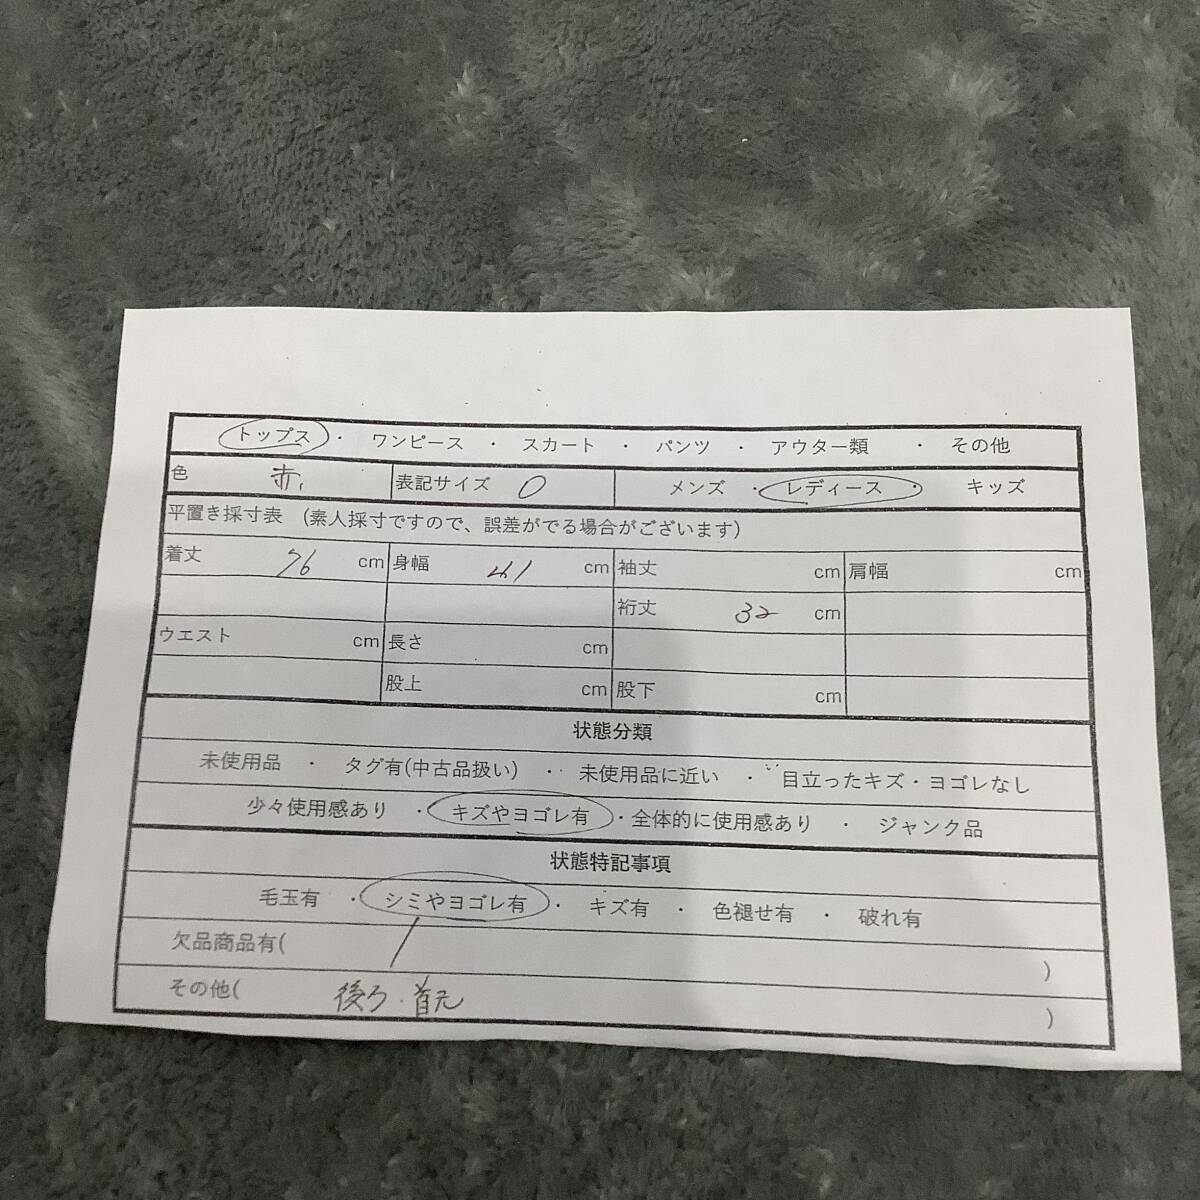 トップス ・ ワンピース ・ スカート ・ パンツ ・ アウター類 ・ その他
色 赤 表記サイズ 0 メンズ ・ レディース ・ キッズ
平置き採寸表 (素人採寸ですので、誤差がでる場合がございます)
着丈 76 cm 身幅 41 cm 袖丈 cm 肩幅 cm
裄丈 32 cm
ウエスト cm 長さ cm
股上 cm 股下 cm
状態分類
未使用品 ・ タグ有(中古品扱い) ・ 未使用品に近い ・ 目立ったキズ・ヨゴレなし
少々使用感あり ・ キズやヨゴレ有 ・ 全体的に使用感あり ・ ジャンク品
状態特記事項
毛玉有 ・ シミやヨゴレ有 ・ キズ有 ・ 色褪せ有 ・ 破れ有
欠品商品有( )
その他( 後ろ・首元 )